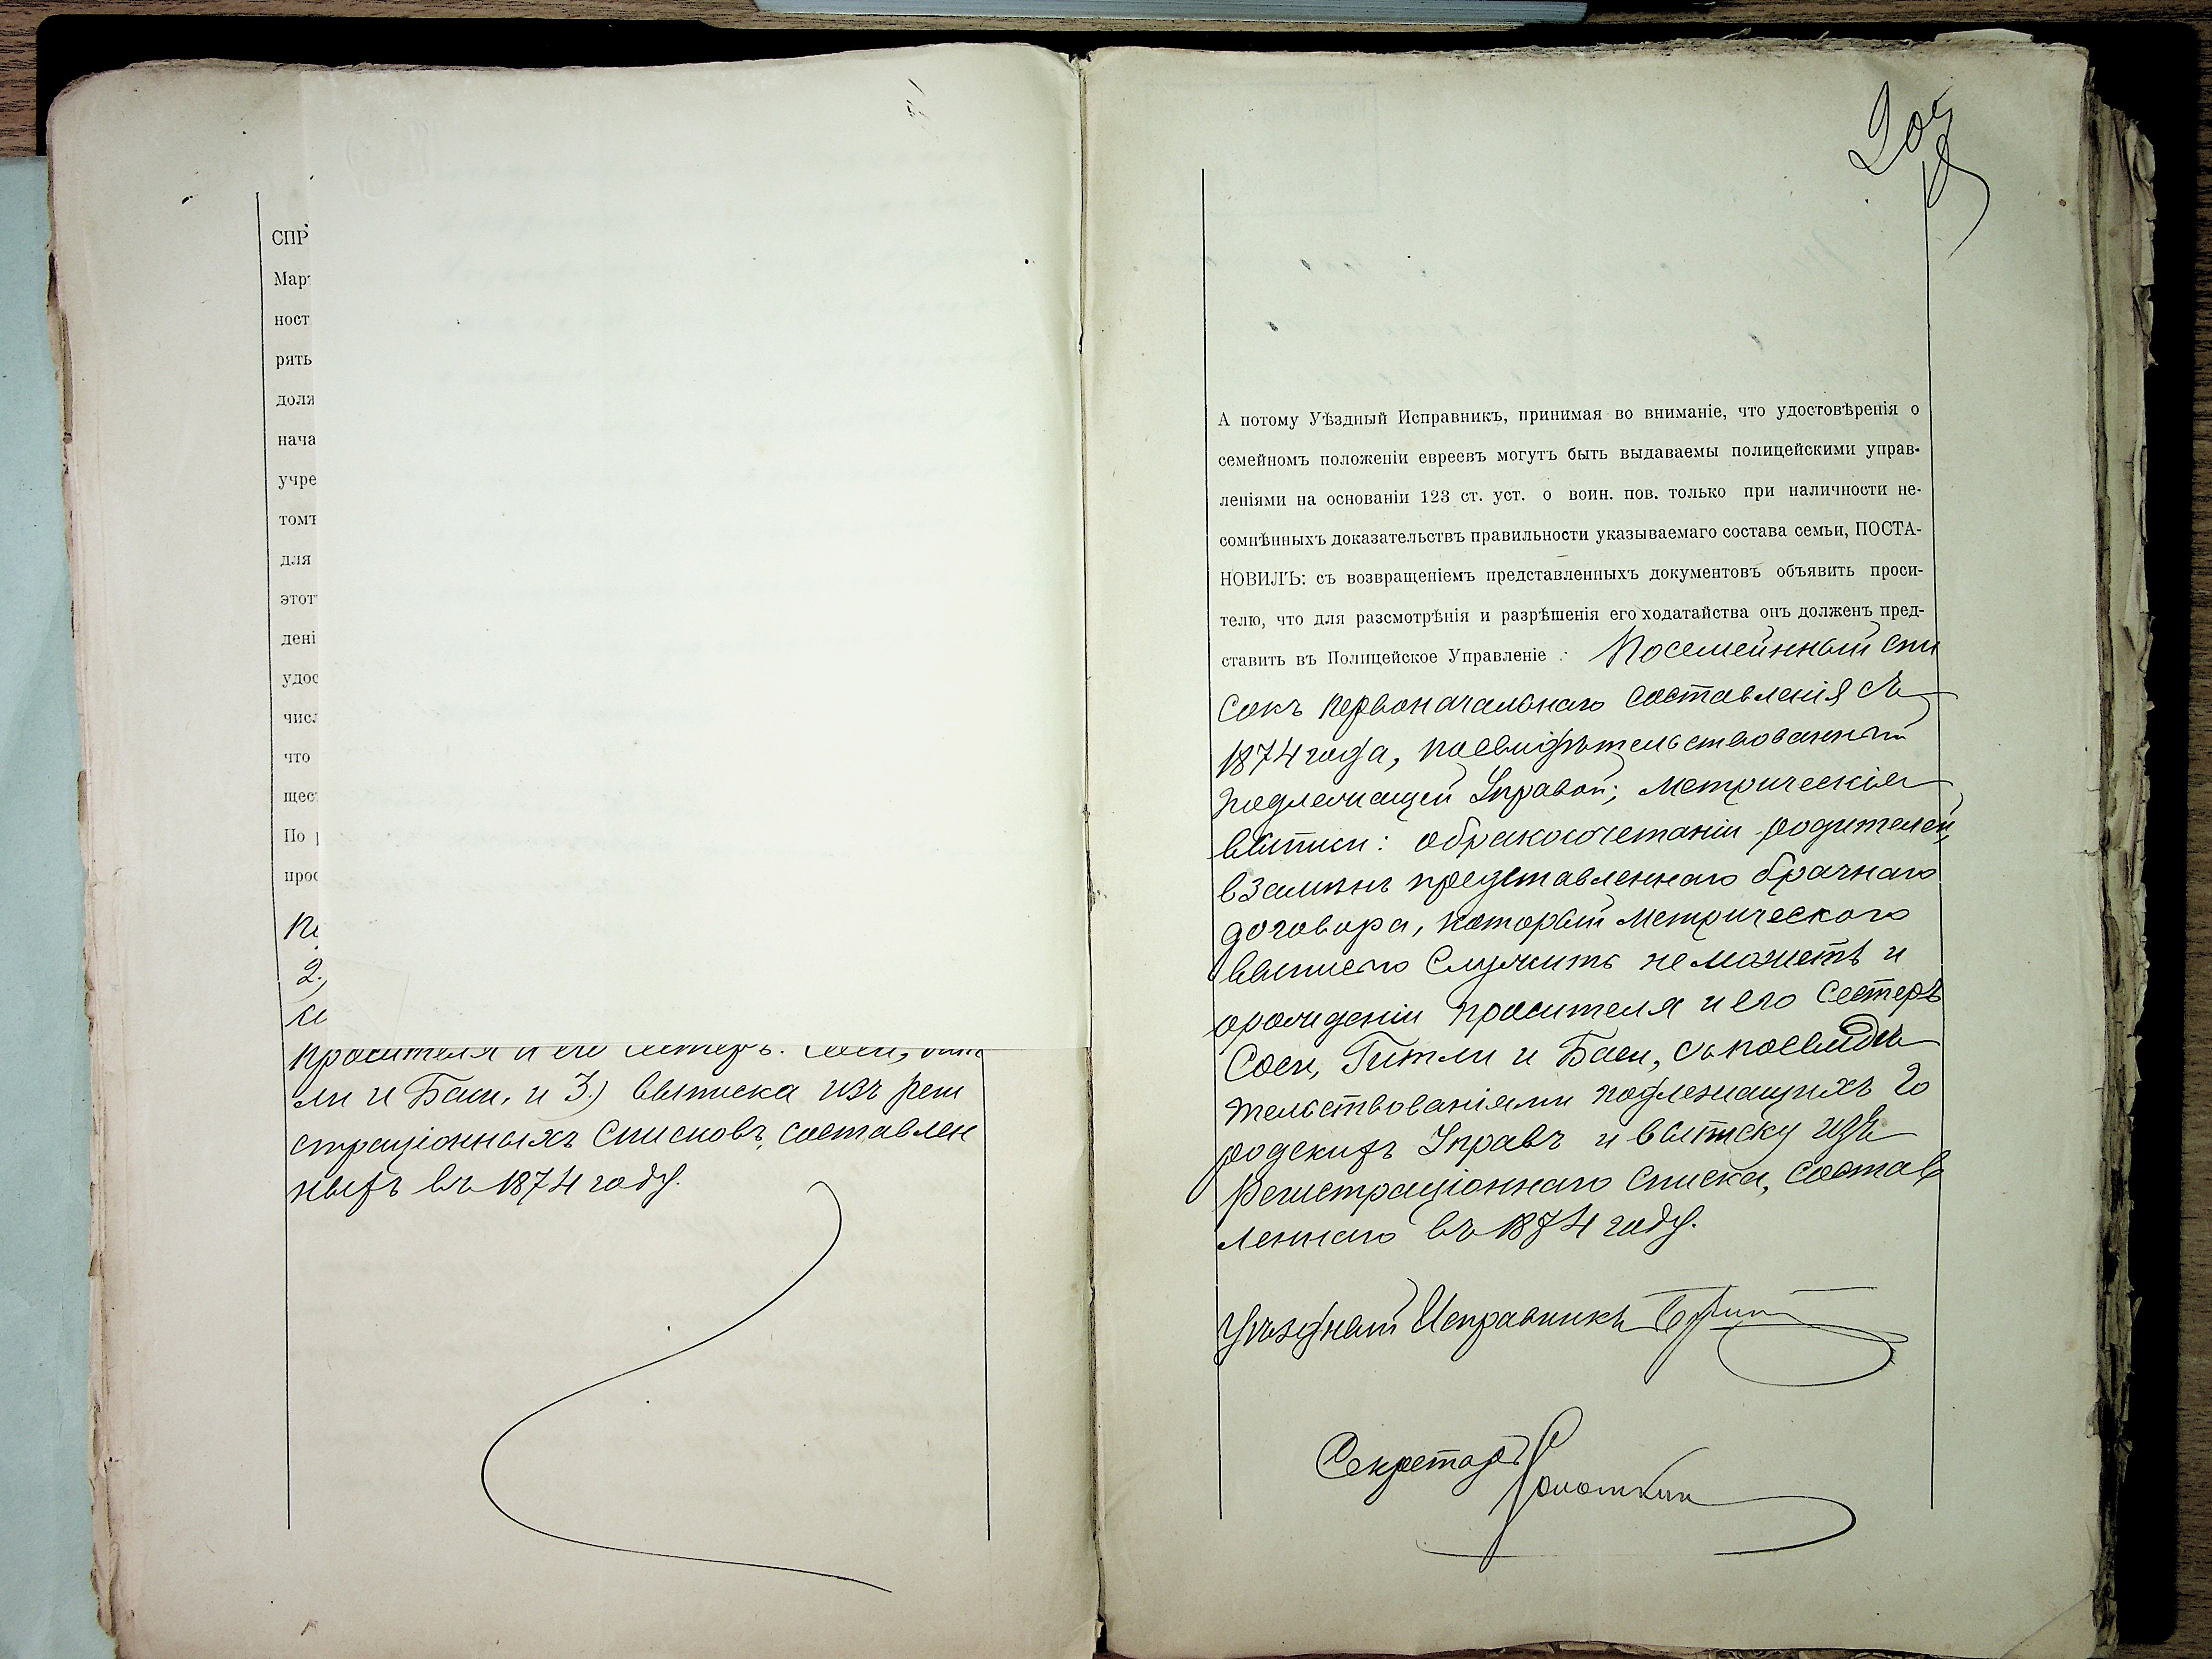 СПР
Мар
ност
рять
долж
нача
учре
томъ
для
этот
дені
удос
числ
что
щес
По
прос
2.)
просителя и его сестеръ: Соси, Гит
ли и Баси, и 3.) выписка изъ реги
страціонныхъ списковъ, составлен
ныхъ въ 1874 году.
А потому Уѣздный Исправникъ, принимая во вниманіе, что удостовѣренія о
семейномъ положеніи евреевъ могутъ быть выдаваемы полицейскими управ-
леніями на основаніи 123 ст. уст. о воин. пов. только при наличности не-
сомнѣнныхъ доказательствъ правильности указываемаго состава семьи, ПОСТА-
НОВИЛЪ: съ возвращеніемъ представленныхъ документовъ объявить проси-
телю, что для разсмотрѣнія и разрѣшенія его ходатайства онъ долженъ пред-
ставить въ Полицейское Управленіе: Посемейный спи
сокъ первоначальнаго составленія съ
1874 года, посвидѣтельствованный
подлежащей Управой; метрическія
выписи: о бракосочетаніи родителей,
взамѣнъ представленнаго брачнаго
договора, который метрическою
выписью служить не можетъ и
о рожденіи просителя и его сестеръ
Соси, Гитли и Баси, съ посвидѣ
тельствованіями подлежащихъ Го
родскихъ Управъ и выписку изъ
регистраціоннаго списка, состав
леннаго въ 1874 году.
Уѣздный Исправникъ
Секретарь